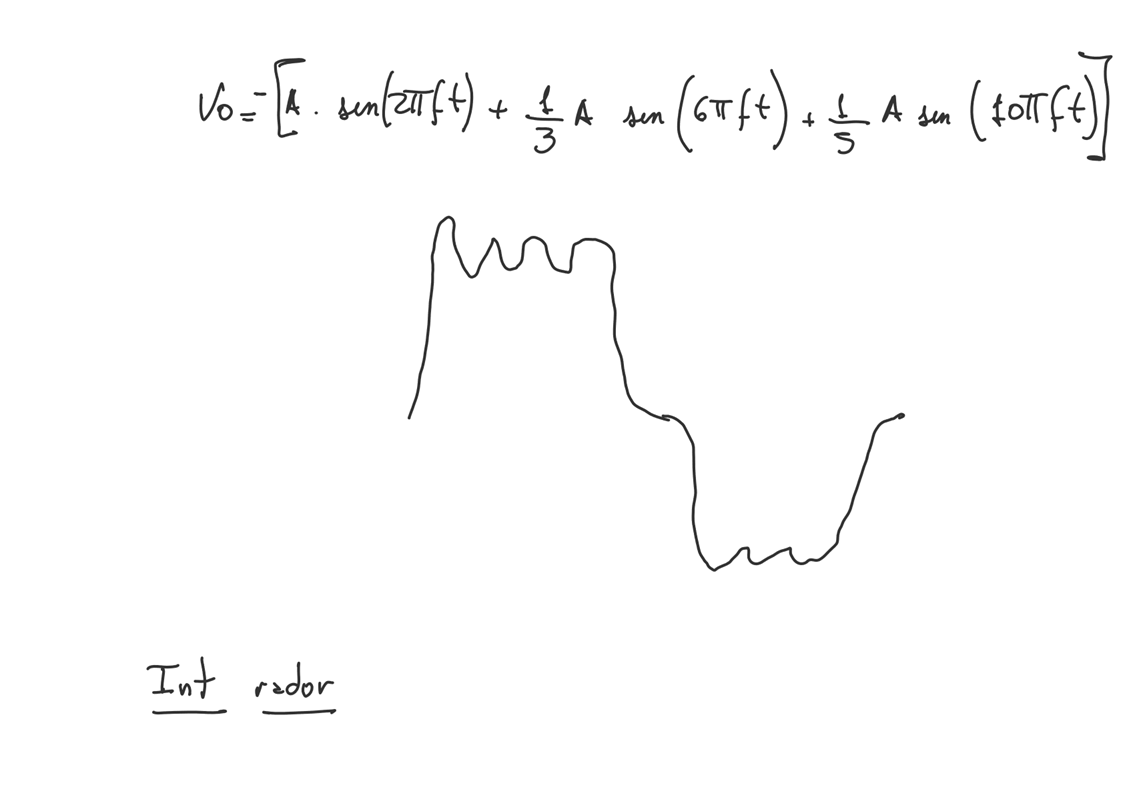 Vo = -[A · sen(2πft) + 1/3 A sen(6πft) + 1/5 A sen(10πft)]
Int rador